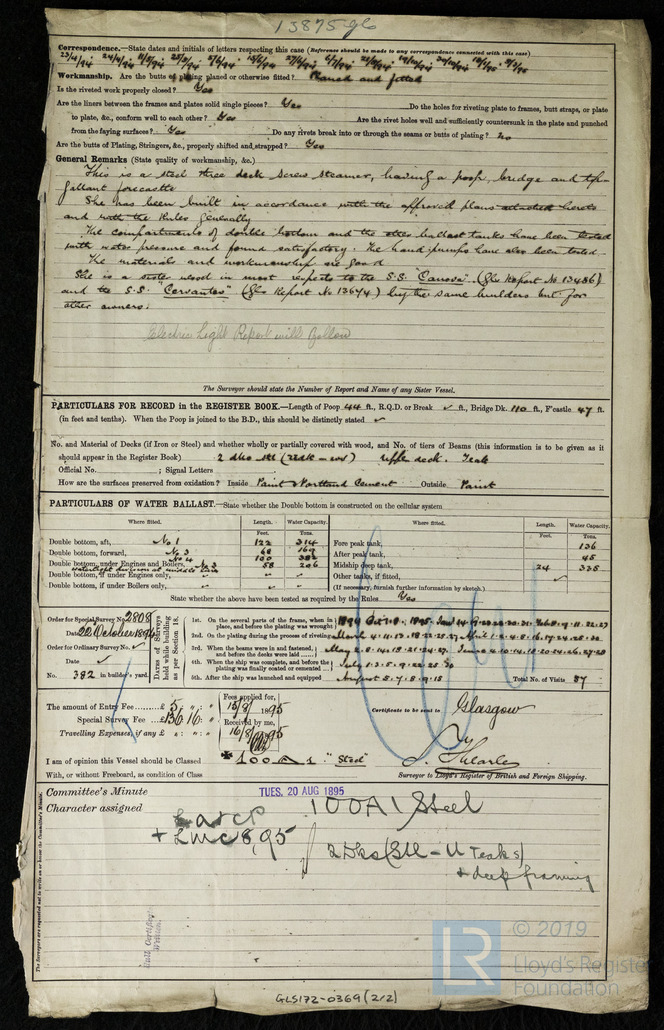 13875 gls
Correspondence.—State dates and initials of letters respecting this case (Reference should be made to any correspondence connected with this case)
Workmanship. Are the butts of plating planed or otherwise fitted? Planed and fitted
Is the riveted work properly closed? Yes
Are the liners between the frames and plates solid single pieces? Yes Do the holes for riveting plate to frames, butt straps, or plate
to plate, &c., conform well to each other? Yes Are the rivet holes well and sufficiently countersunk in the plate and punched
from the faying surfaces? Yes Do any rivets break into or through the seams or butts of plating? no
Are the butts of Plating, Stringers, &c., properly shifted and strapped? Yes
General Remarks (State quality of workmanship, &c.)
This is a steel three deck screw steamer, having a poop, bridge and top-
gallant forecastle
She has been built in accordance with the approved plans attached hereto
and with the Rules generally
The compartments of double bottom and the other ballast tanks have been tested
with water pressure and found satisfactory. The hand pumps have also been tested.
The materials and workmanship are good
She is a sister vessel in most respects to the S.S. "Canova" (Gls Report No 13486)
and the S.S. "Cervantes" (Gls Report No 13674) by the same builders but for
other owners.
Electric Light Report will follow
The Surveyor should state the Number of Report and Name of any Sister Vessel.
PARTICULARS FOR RECORD in the REGISTER BOOK.—Length of Poop 44 ft., R.Q.D. or Break ✓ ft., Bridge Dk. 110 ft., F'castle 47 ft.
(in feet and tenths). When the Poop is joined to the B.D., this should be distinctly stated ✓
No. and Material of Decks (if Iron or Steel) and whether wholly or partially covered with wood, and No. of tiers of Beams (this information is to be given as it
should appear in the Register Book) 2 dks upper deck. Teak
Official No. ; Signal Letters
How are the surfaces preserved from oxidation? Inside Paint & Portland Cement Outside Paint
PARTICULARS OF WATER BALLAST.—State whether the Double bottom is constructed on the cellular system
Where fitted. Length. Water Capacity. Where fitted. Length. Water Capacity.
Feet. Tons. Feet. Tons.
Double bottom, aft, No 1 122 314 Fore peak tank, 136
Double bottom, forward, No 3 68 169 After peak tank, 45
No 4 100 382
Double bottom, under Engines and Boilers, No 2 58 206 Midship deep tank, 24 335
watertight division at middle line
Double bottom, if under Engines only, " " Other tanks, if fitted, ✓
Double bottom, if under Boilers only, " " (If necessary, furnish further information by sketch.)
State whether the above have been tested as required by the Rules Yes
Order for Special Survey No. 2808
Date 22 October 1894
Order for Ordinary Survey No. ✓
Date ✓
No. 382 in builder's yard.
Dates of Surveys held while building as per Section 18.
1st. On the several parts of the frame, when in place, and before the plating was wrought
2nd. On the plating during the process of riveting
3rd. When the beams were in and fastened, and before the decks were laid
4th. When the ship was complete, and before the plating was finally coated or cemented
5th. After the ship was launched and equipped August 5. 7. 8. 9. 15 Total No. of Visits 87
The amount of Entry Fee £ 5 : " : "
Special Survey Fee £130 : 16 : "
Travelling Expenses, if any £ " : " : "
Fees applied for, 15/8/1895
Received by me, 16/8/95
Certificate to be sent to Glasgow
I am of opinion this Vessel should be Classed ✠100 A1 "Steel"
With, or without Freeboard, as condition of Class
Surveyor to Lloyd's Register of British and Foreign Shipping.
Committee's Minute TUES. 20 AUG 1895
Character assigned 100A1 Steel
L.A & C P
+ LMC 8,95
2 Dks (Stl – U Teak s)
+ deep framing
The Surveyors are requested not to write on or below the Committee's Minute.
Hull Certificate Written.
© 2019
LR
Lloyd's Register
Foundation
GLS172-0369 (2/2)